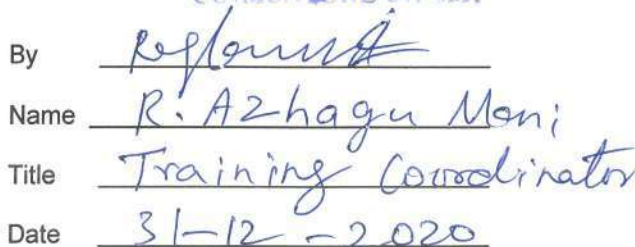 By
Name R. Azhagu Mani
Title Training Coordinator
Date 31-12-2020